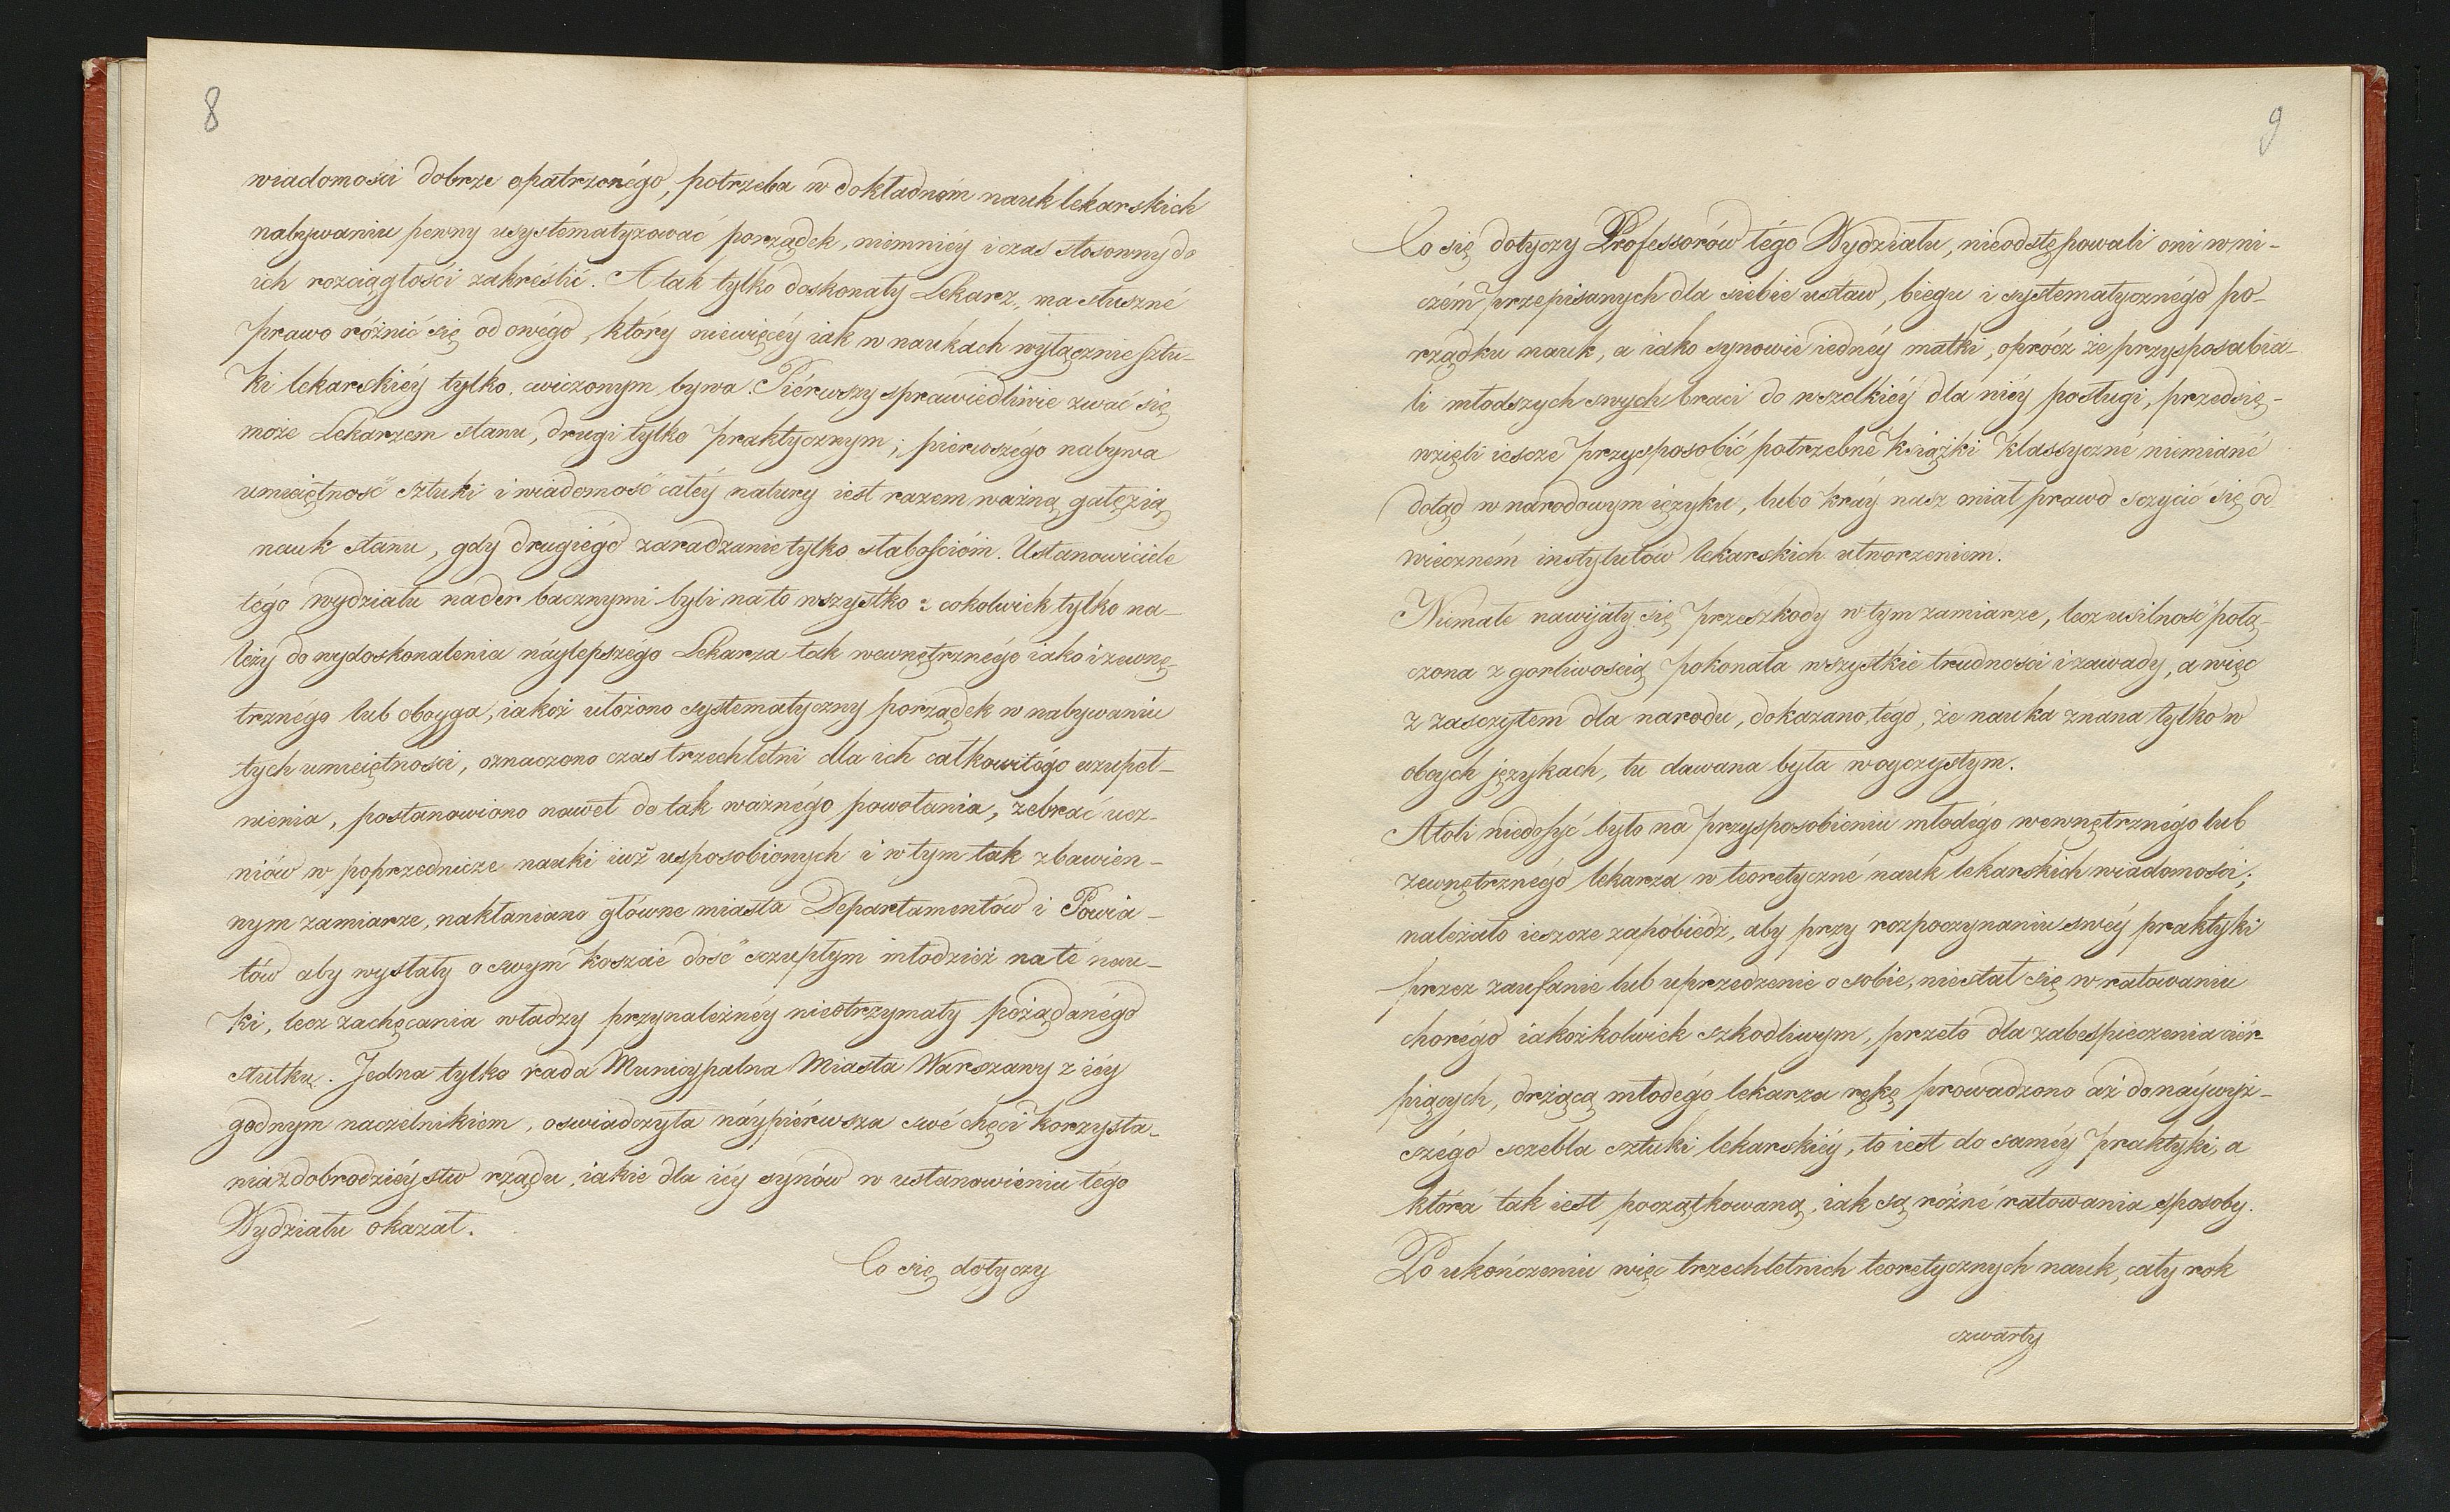 8
wiadomości dobrze opatrzonégo, potrzeba w dokładném nauk lekarskich
nabywaniu pewny usystematyzować porządek, niemniéy i czas stosowny do
ich rozciągłości zakréslić. A tak tylko doskonały Lekarz, ma słuszné
prawo różnić się od owégo, który niewięcéy iak w naukach wyłącznie sztu-
ki lekarskiéy tylko cwiczonym bywa. Piérwszy sprawiedliwie zwać się
może Lekarzem stanu, drugi tylko praktycznym; pierwszégo nabywa
umieiętność sztuki i wiadomość całéy natury iest razem ważną gałęzią
nauk stanu, gdy drugiégo zaradzanie tylko słabościóm. Ustanowiciele
tégo wydziału nader bacznymi byli na to wszystko: cokolwiek tylko na-
leży do wydoskonalenia náylepszégo Lekarza tak wewnętrznégo iako i zewnę-
trznégo lub oboyga, iakoż ułożono systematyczny porządek w nabywaniu
tych umieiętności, oznaczono czas trzechletni dla ich całkowitégo uzupeł-
nienia, postanowiono nawet do tak ważnégo powołania, zebrać ucz-
niów w poprzednicze nauki iuż usposobionych i w tym tak zbawien-
nym zamiarze, nakłaniano główne miasta Departamentów i Powia-
tów aby wysłały o swym koszcie dość szczupłym młodzież na té nau-
ki, lecz zachęcania władzy przynależnéy nieotrzymały pożądanégo
skutku. Jedna tylko rada Municypalna Miasta Warszawy z iéy
godnym naczelnikiem, oswiadczyła náypiérwsza swé chęci korzysta-
nia z dobrodziéystw rządu, iakie dla iéy synów w ustanowieniu tégo
Wydziału okazał.
Co się dotyczy
9
Co się dotyczy Professorów tégo Wydziału, nieodstępowali oni w ni-
czém przepisanych dla siebie ustaw, biegu i systematycznégo po-
rządku nauk, a iako synowie iednéy matki, oprócz że przysposabia-
li młodszych swych braci do wszelkiéy dla niéy posługi, przedsię-
wzięli iescze przysposobić potrzebné książki klassyczné niemiané
dotąd w narodowym ięzyku, lubo kráy nasz miał prawo sczycić się od
wieczném instytutów lekarskich utworzeniem.
Niemałe nawijały się przeszkody w tym zamiarze, lecz usilność połą-
czona z gorliwością pokonała wszystkie trudności i zawady, a więc
z zasczytem dla narodu, dokazano tégo, że nauka znana tylko w
obcych językach, tu dawana była w oyczystym.
Atoli niedosyć było na przysposobieniu młodégo wewnętrznégo lub
zewnętrznégo lekarza w teoretyczné nauk lekarskich wiadomości;
należało ieszcze zapobiedz, aby przy rozpoczynaniu swéy praktyki
przez zaufanie lub uprzedzenie o sobie, niestał się w ratowaniu
chorégo iakożkolwiek szkodliwym, przeto dla zabespieczenia ciér-
piących, drżącą młodégo lekarza rękę prowadzono aż do náywyż-
szégo sczebla sztuki lekarskiéy, to iest do saméy praktyki, a
która tak iest początkowaną, iak są różné ratowania sposoby.
Po ukończeniu więc trzechletnich teoretycznych nauk, cały rok
czwarty